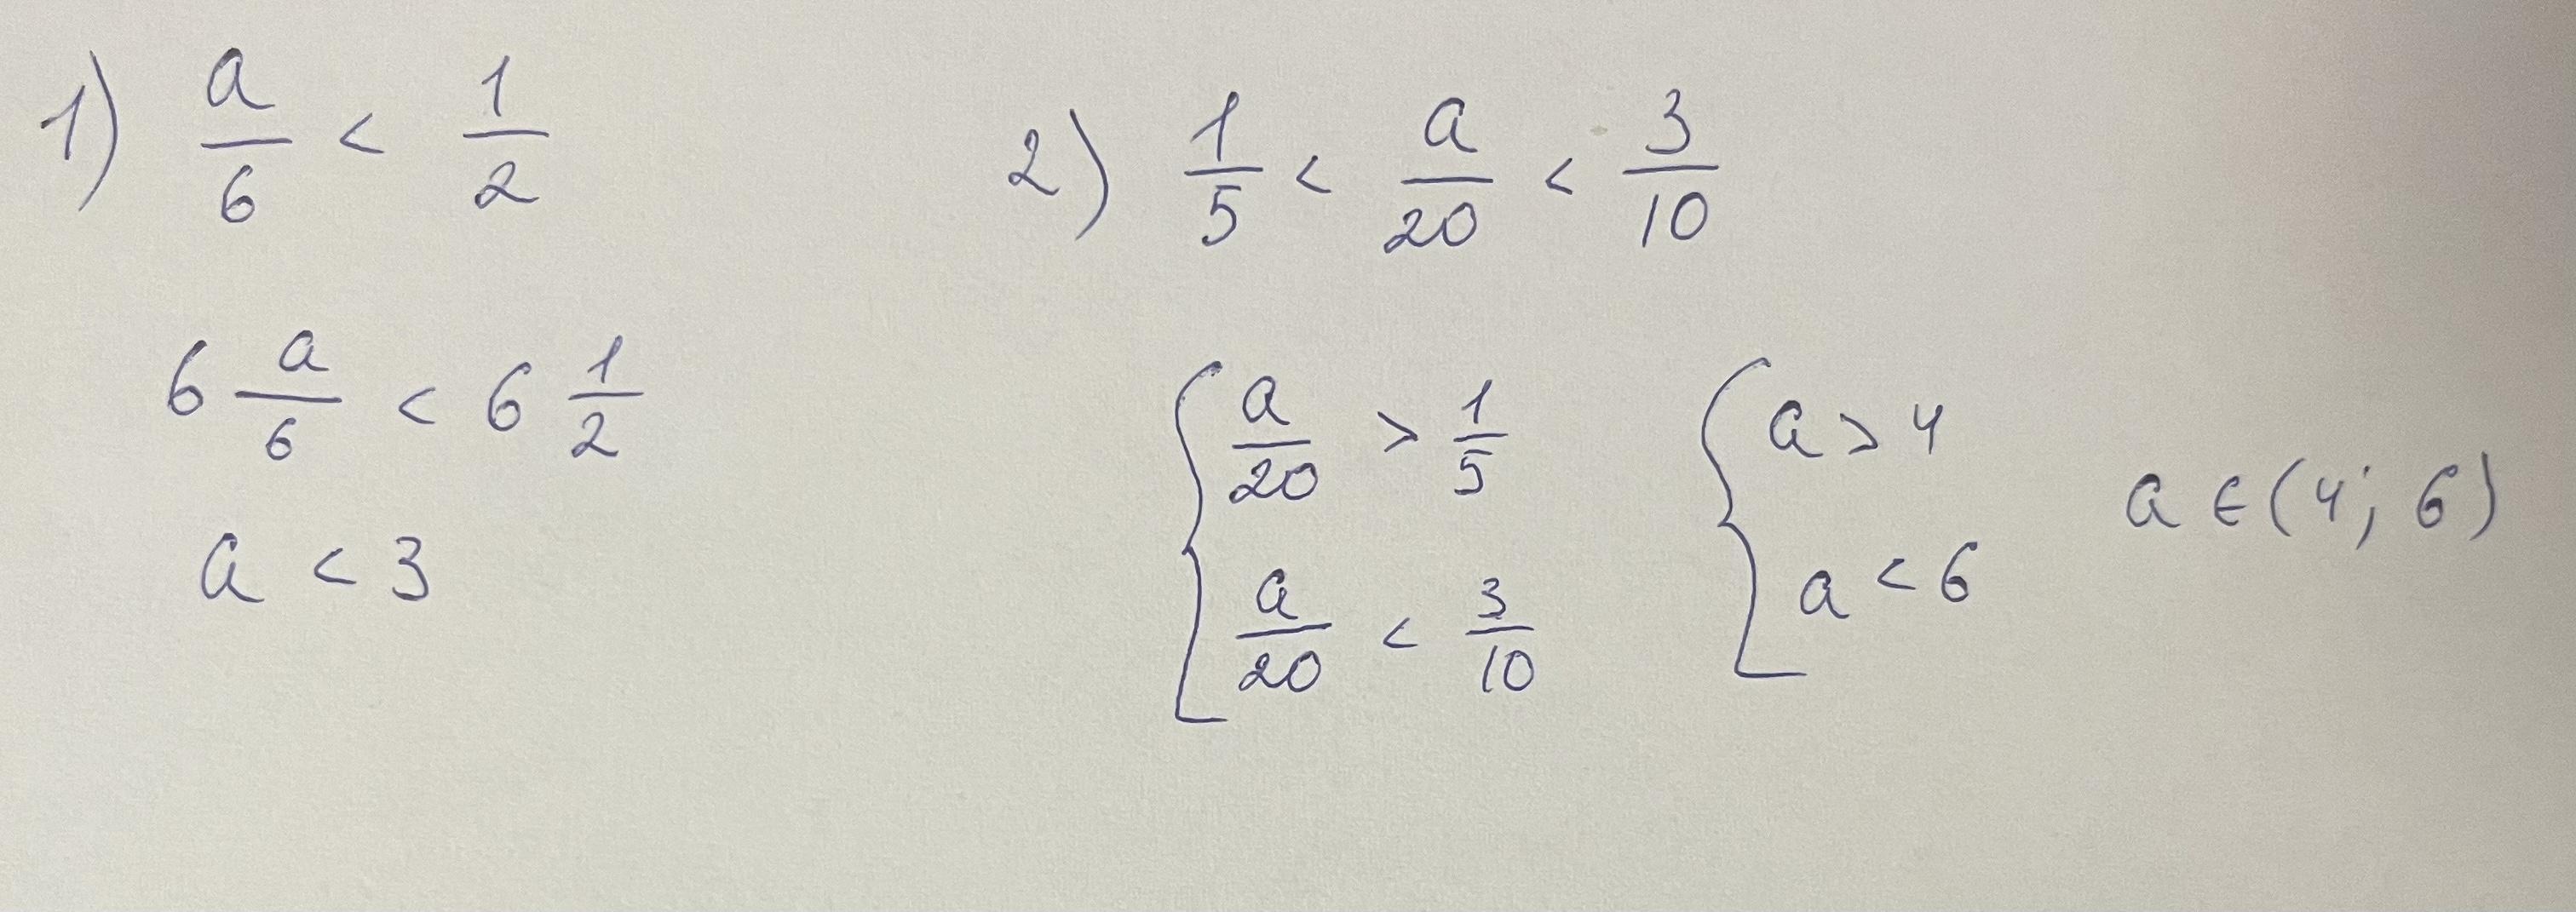 1) a/6 < 1/2
6 a/6 < 6 1/2
a < 3
2) 1/5 < a/20 < 3/10
{ a/20 > 1/5
a/20 < 3/10
{ a > 4
a < 6
a ∈ (4; 6)